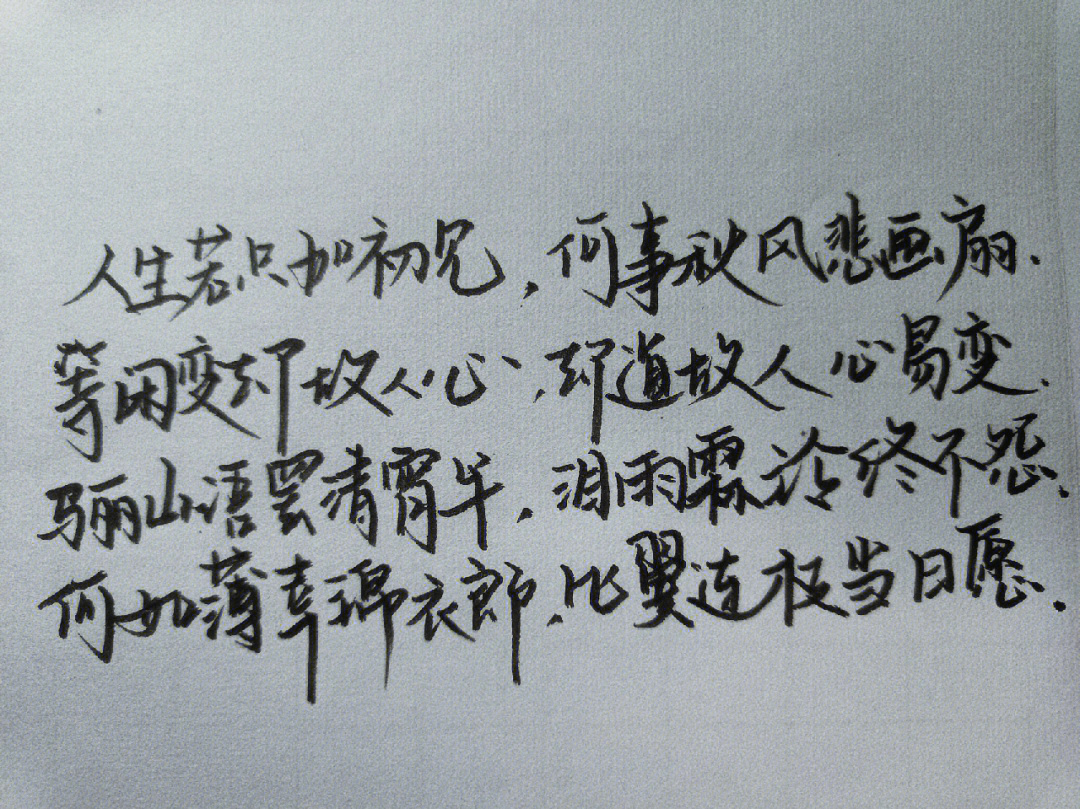 人生若只如初见，何事秋风悲画扇.
等闲变却故人心，却道故人心易变.
骊山语罢清宵半，泪雨霖泠终不怨.
何如薄幸锦衣郎，比翼连枝当日愿.